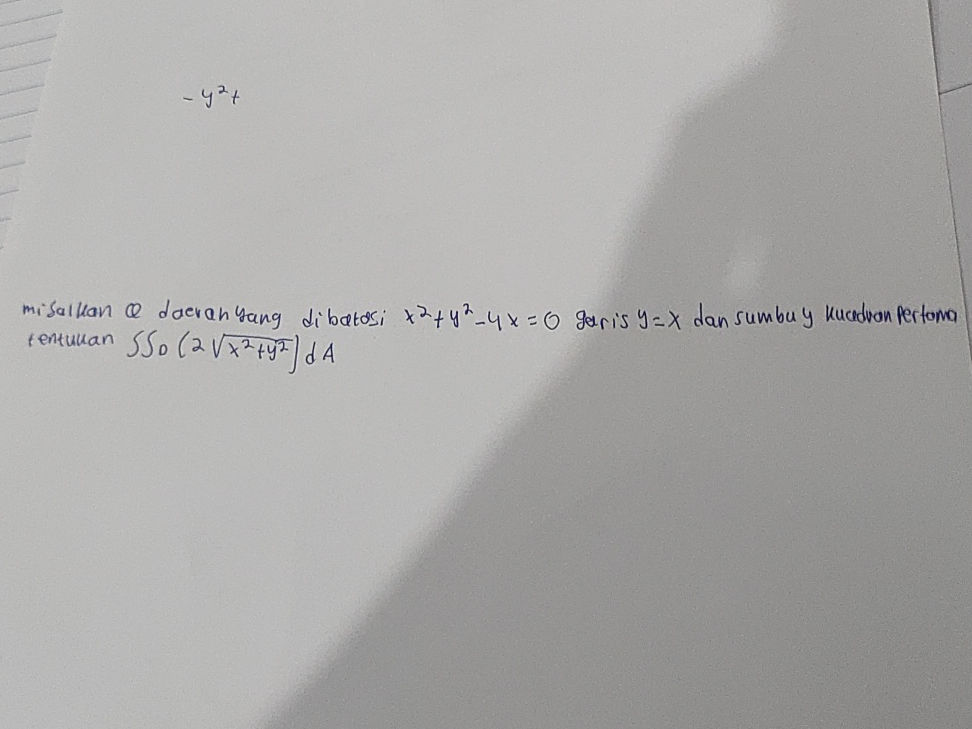 - y²+
misalkan D daerah yang dibatasi x²+y²-4x=0 garis y=x dan sumbu y kuadran pertama
tentukan ∫∫D (2√x²+y²) dA